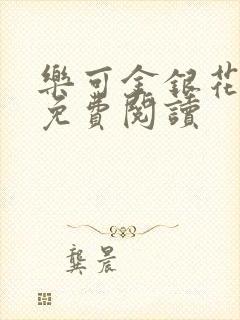 樂可金銀花
免費閱讀
龔晨